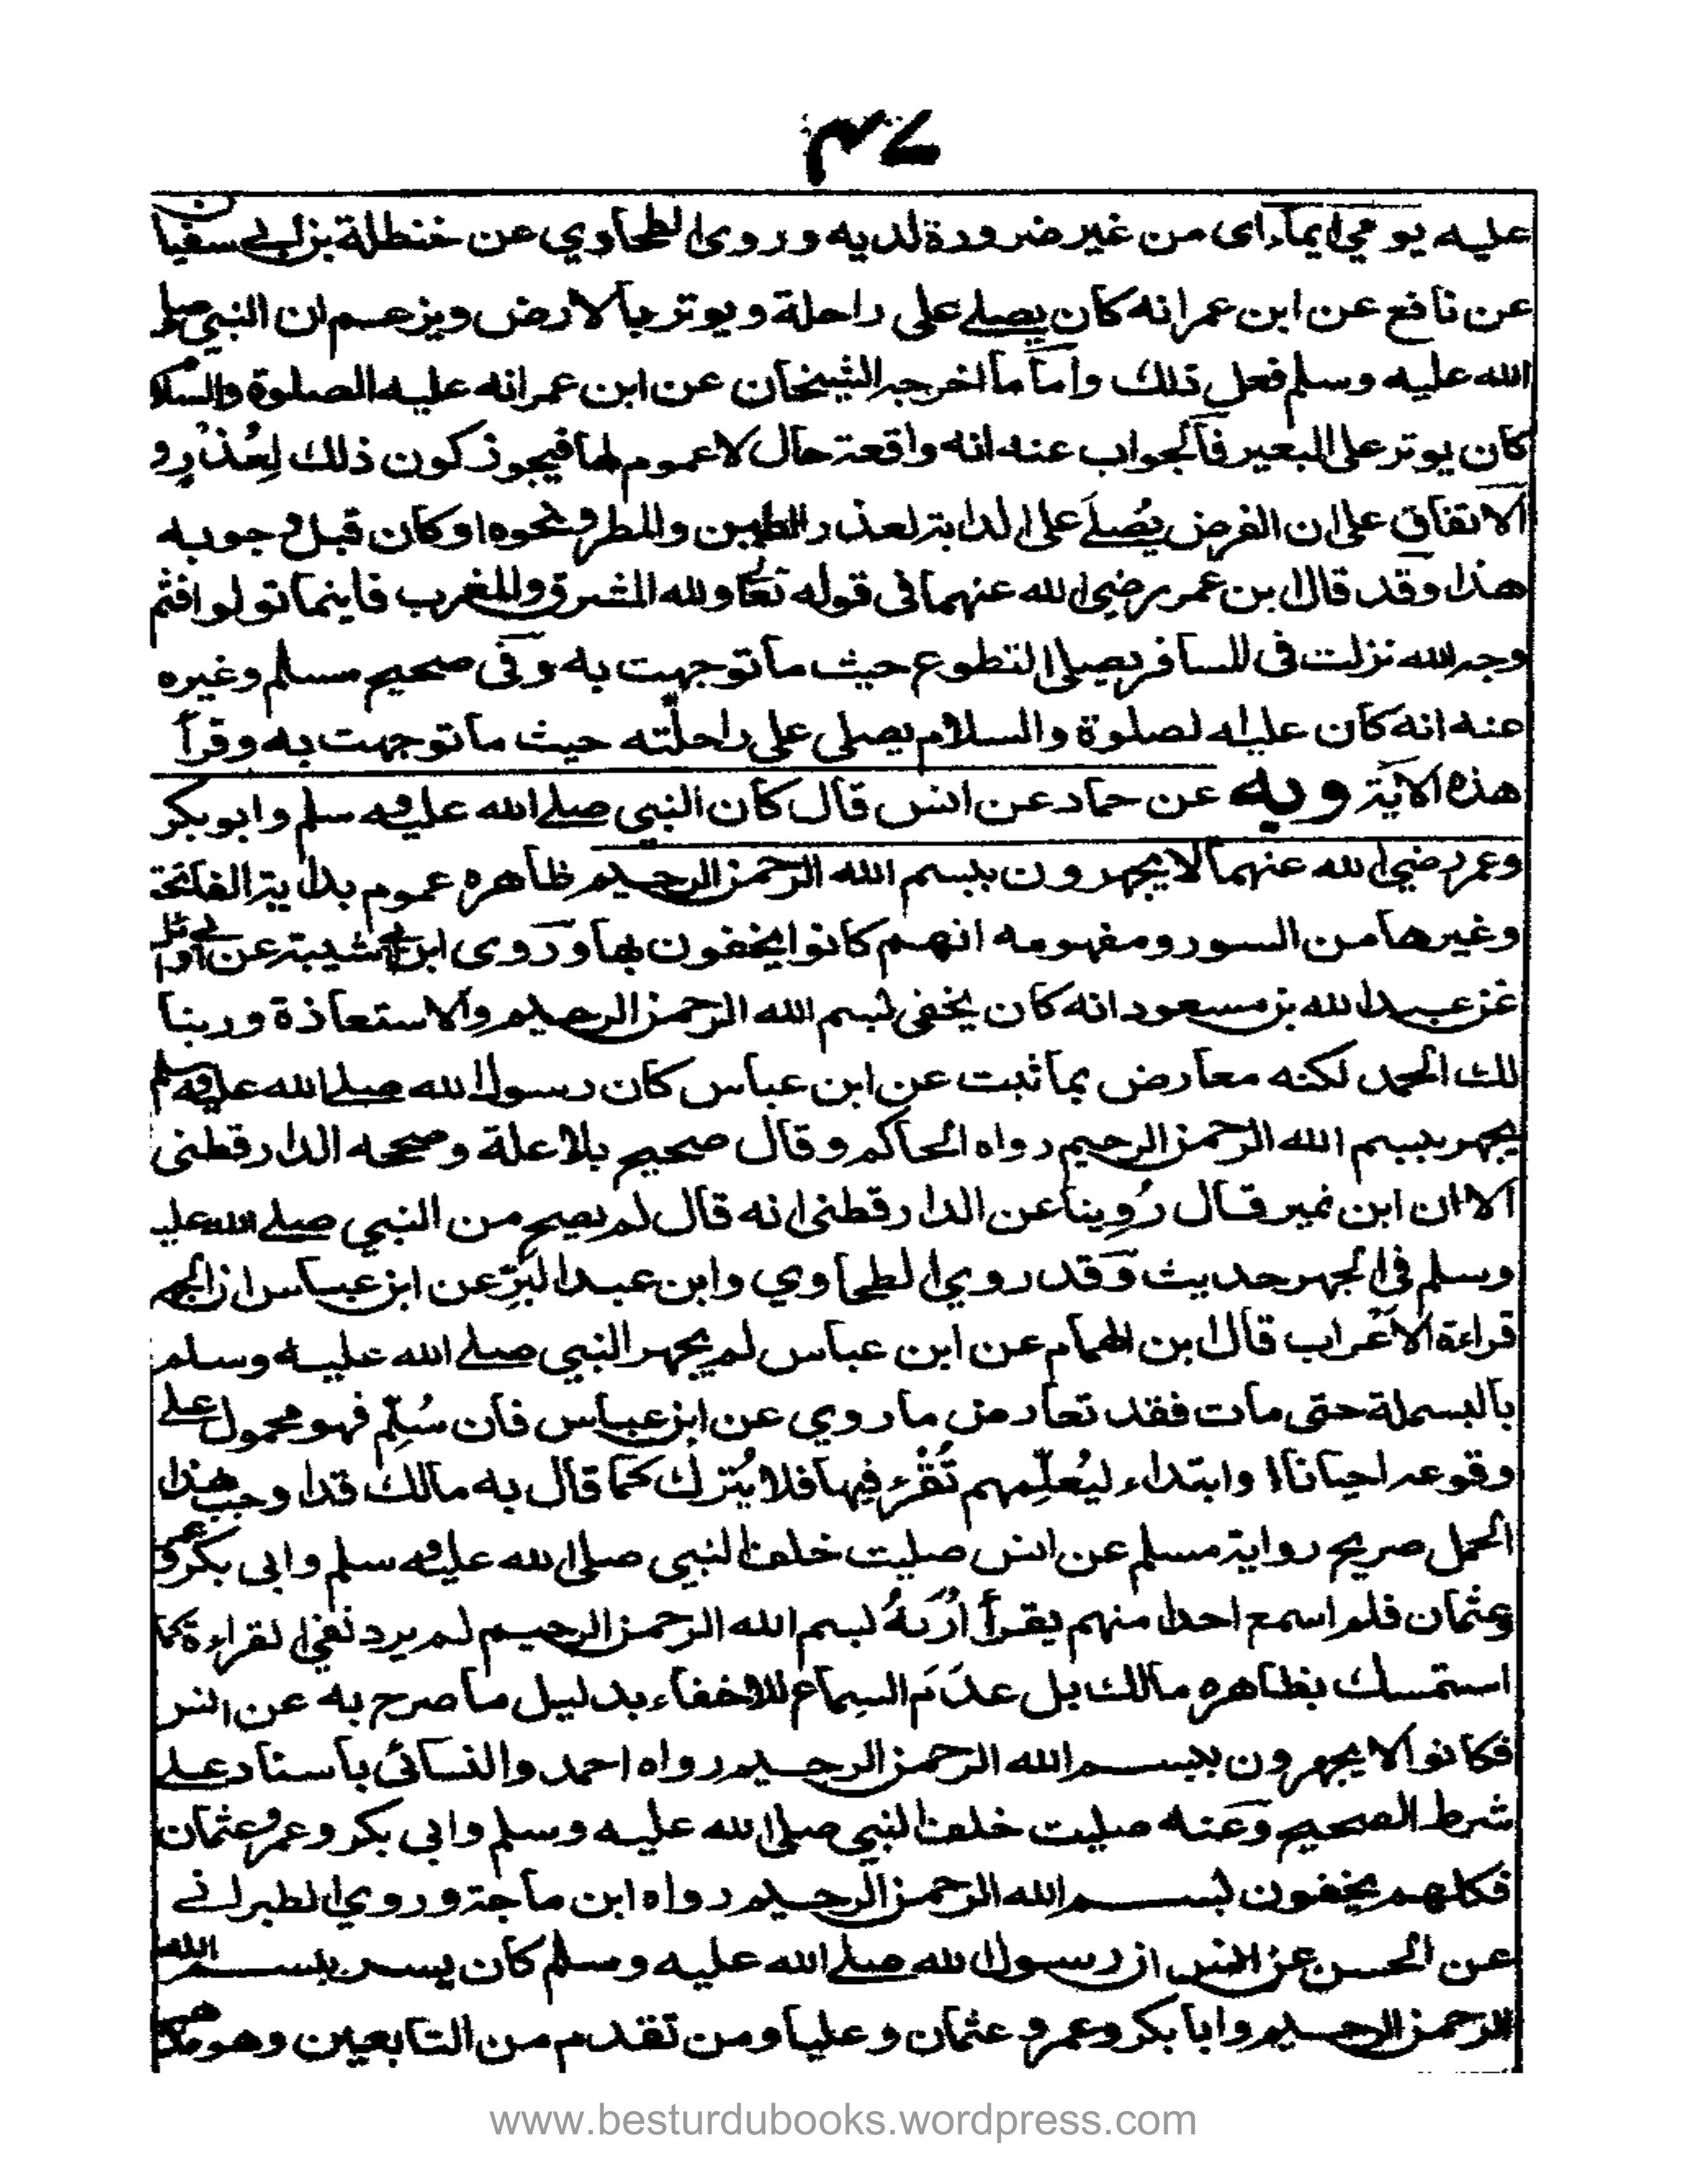 ٣٧
عليه يومي ايماء اى من غير ضرورة لديه وروى الطحاوي عن حنظلة بن ابي سفيان
عن نافع عن ابن عمر انه كان يصلے على راحلة ويوتر بالارض ويزعم ان النبي صلى
الله عليه وسلم فعل ذلك وأما ما اخرجه الشيخان عن ابن عمر انه عليه الصلوة والسلام
كان يوتر على البعير فالجواب عنه انه واقعة حال لا عموم لها فيجوز كون ذلك لعُذْرٍ و
الاتفاق على ان الفرض يُصلےَ على الدابة لعذر الطين والمطر ونحوه او كان قبل وجوبه
هذا وقد قال ابن عمر رضي الله عنهما فى قوله تعالى ولله المشرق والمغرب فاينما تولوا فثم
وجه الله نزلت فى المسافر يصلى التطوع حيث ما توجهت به وفى صحيح مسلم وغيره
عنه انه كان عليه الصلوة والسلام يصلى على راحلته حيث ما توجهت به وقرأ
هذه الاية وبه عن حماد عن انس قال كان النبي صلے الله عليه وسلم وابو بكر
وعمر رضي الله عنهما لا يجهرون ببسم الله الرحمن الرحيم ظاهره عموم بداية الفاتحة
وغيرها من السور ومفهومه انهم كانوا يخفون بها وروى ابن ابي شيبة عن ابي وائل
عن عبد الله بن مسعود انه كان يخفى لبسم الله الرحمن الرحيم والاستعاذة وربنا
لك الحمد لكنه معارض بما ثبت عن ابن عباس كان رسول الله صلے الله عليه وسلم
يجهر ببسم الله الرحمن الرحيم رواه الحاكم وقال صحيح بلا علة وصححه الدارقطنى
الا ان ابن نمير قال رُوينا عن الدارقطنى انه قال لم يصح من النبي صلے الله عليه
وسلم فى الجهر حديث وقد روى الطحاوي وابن عبد البرّ عن ابن عباس ان الجهر
قراءة الاعراب قال ابن الهمام عن ابن عباس لم يجهر النبي صلے الله عليه وسلم
بالبسملة حتى مات فقد تعارض ما روي عن ابن عباس فان سُلِّم فهو محمول علے
وقوعه احيانا او ابتداء ليُعلِّمهم تُقْرء فيها فلا يُترك كما قال به مالك قد اوجب هذا
الحمل صريح رواية مسلم عن انس صليت خلف النبي صلى الله عليه وسلم وابى بكر وعمر
وعثمان فلم اسمع احدا منهم يقرأ ببسم الله الرحمن الرحيم لم يرد نفي القراءة كما
استمسك بظاهره مالك بل عَدَمَ السماع للاخفاء بدليل ما صرح به عن انس
فكانوا لا يجهرون ببسم الله الرحمن الرحيم رواه احمد والنسائى باسناد علے
شرط الصحيح وعنه صليت خلف النبي صلى الله عليه وسلم وابى بكر وعمر وعثمان
فكلهم يخفون لبسم الله الرحمن الرحيم رواه ابن ماجة وروى الطبرانے
عن الحسن عن انس ان رسول الله صلے الله عليه وسلم كان يسر ببسم الله
الرحمن الرحيم وابا بكر وعمر وعثمان وعليا ومن تقدم من التابعين وهو مذهب
www.besturdubooks.wordpress.com